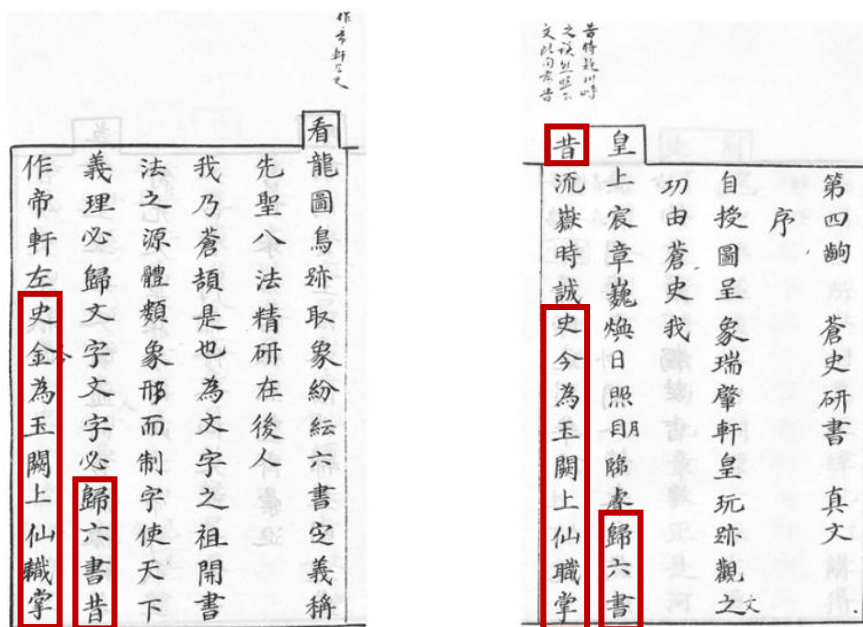 看龍圖鳥跡取象紛紜六書定義稱
先聖八法精研在後人
我乃蒼頡是也為文字之祖開書
法之源體類象形而制字使天下
義理必歸文字文字必歸六書昔
作帝軒左史金為玉闕上仙職掌
今
第四齣 蒼史研書 真文
序
自授圖呈象瑞肇軒皇玩跡觀之
文
功由蒼史我
皇上宸章巍煥日照月臨歸六書
昔流嶽時誠史今為玉闕上仙職掌